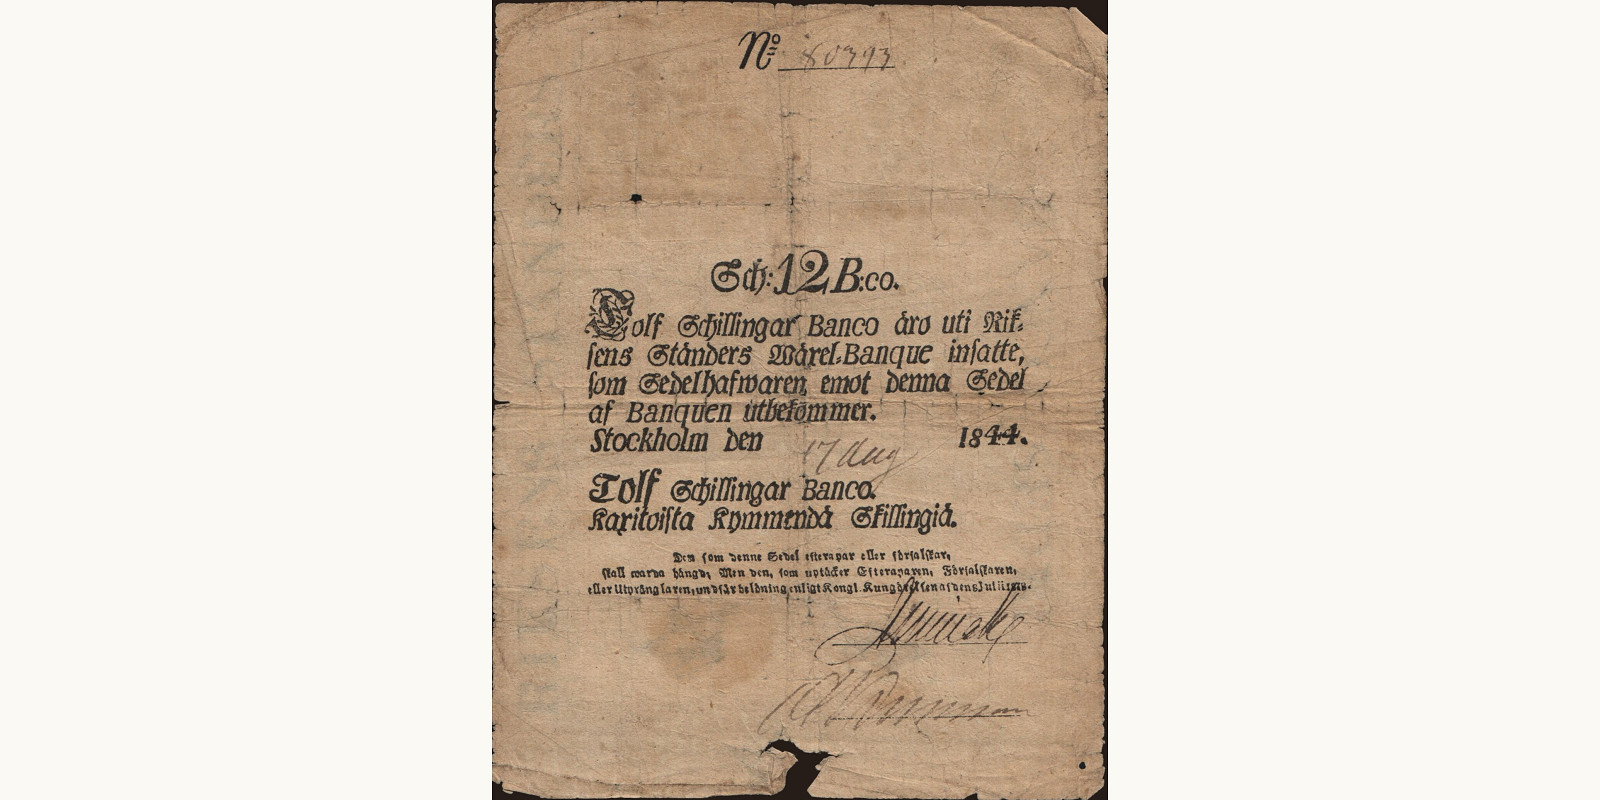 No 80393
Sch: 12 B:co.
Tolf Schillingar Banco äro uti Rik-
sens Ständers Wäxel-Banque insatte,
som Sedelhafwaren emot denna Sedel
af Banquen utbekommer.
Stockholm den 17 Aug 1844.
Tolf Schillingar Banco.
Karitoista Kymmendä Skillingiä.
Den som denne Sedel efterapar eller förfalskar,
skall warda hängd; Men den, som uptäcker Efteraparen, Förfalskaren,
eller Utprånglaren, undfår belöning enligt Kongl. Kungörelsen af den